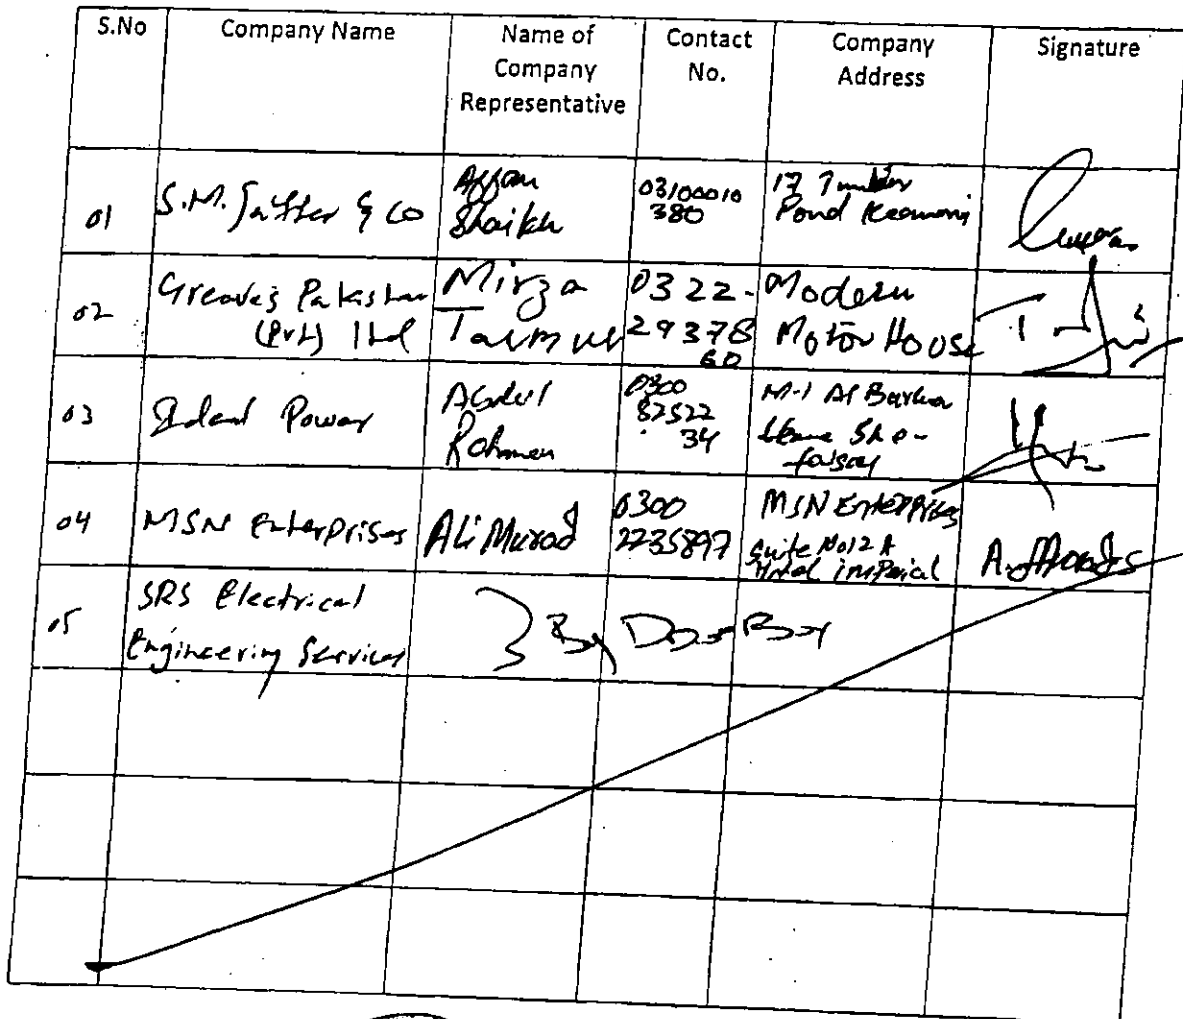 S.No Company Name Name of Company Representative Contact No. Company Address Signature
01 S.M. Jaffer & Co Affan Shaikh 03100010 380 17 Timber Pond Keamari
02 Greaves Pakistan (Pvt) Ltd Mirza 0322- 29378 60 Modern Motor House
03 Power Abdul Rahman 0300 82522 34 M-1 Al
04 MSN Enterprises Ali Murad 0300 2235897 MSN Enterprises Suite No 12 A Hotel imperial
05 SRS Electrical Engineering Services } By